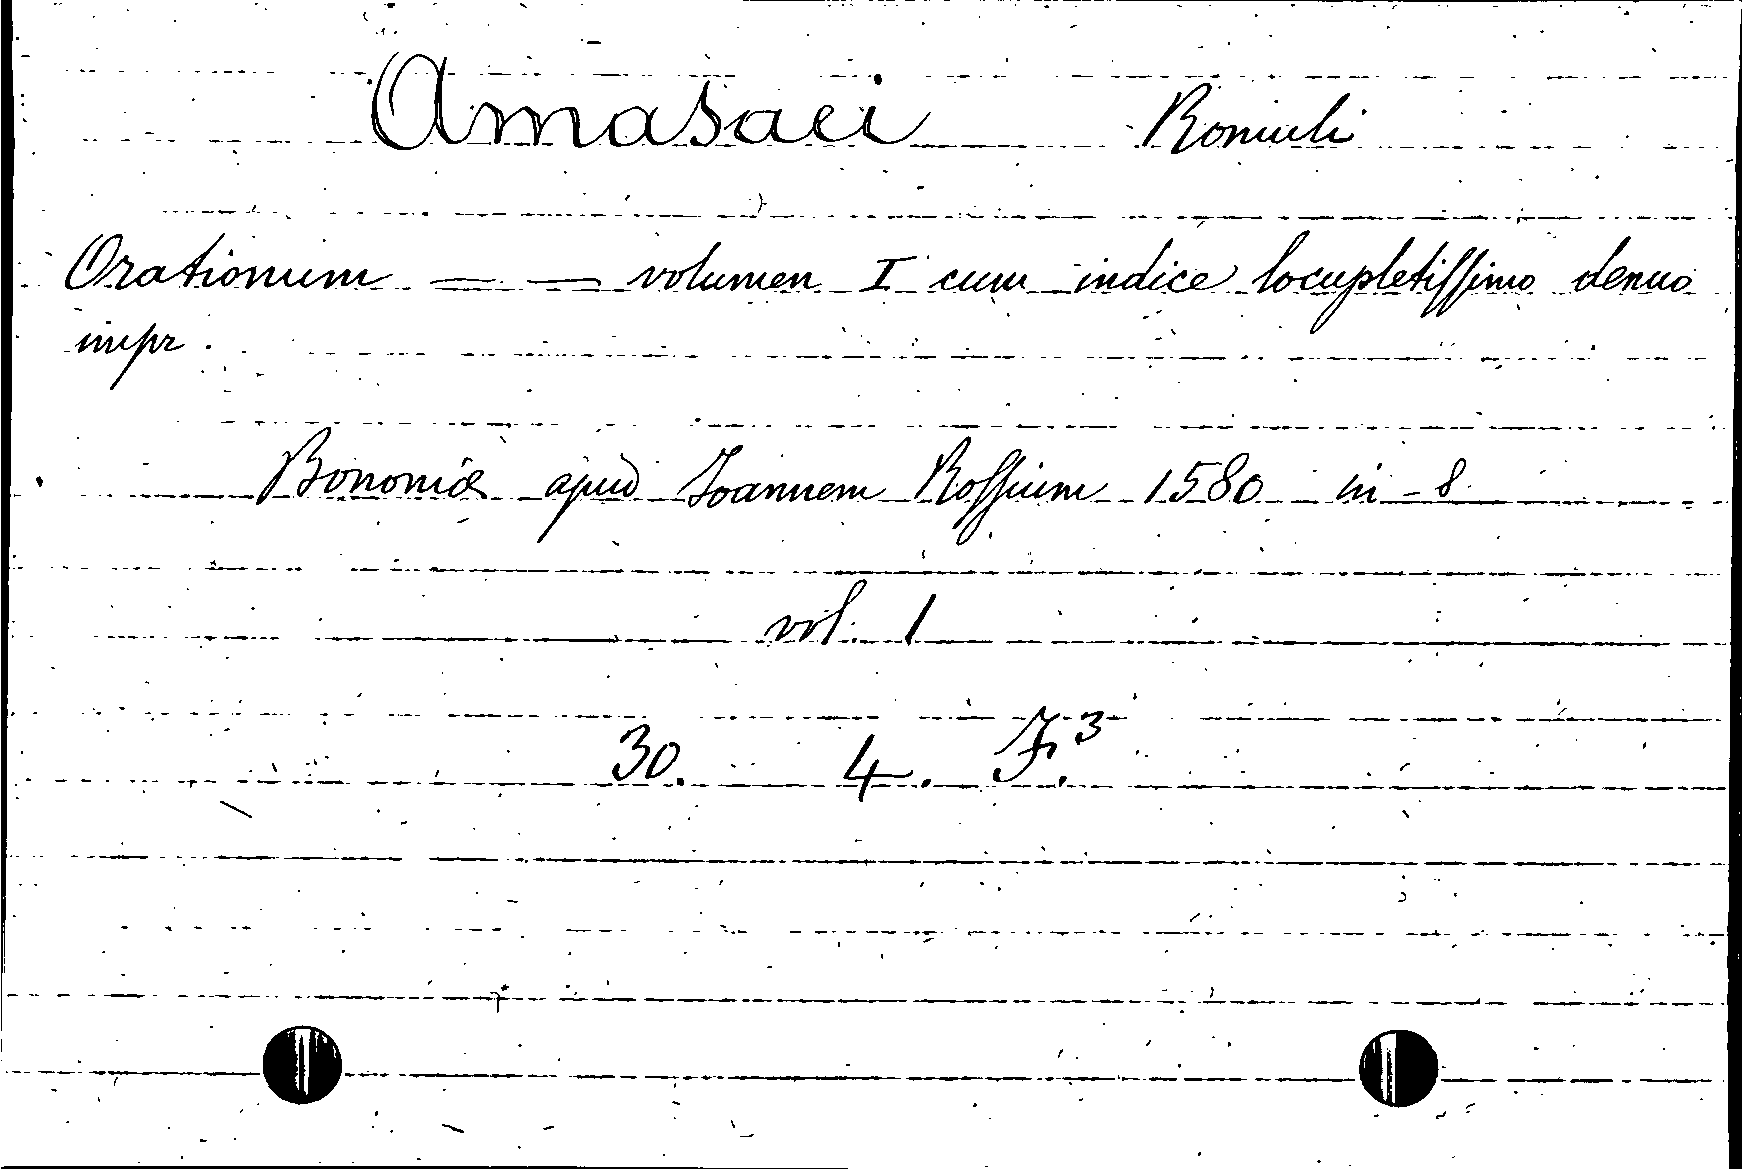 Amasaei Romuli
Orationum — — volumen I cum indice locupletissimo denuo
impr.
Bononiæ apud Joannem Rossium 1580 in-8
vol. 1
30. 4. F.3